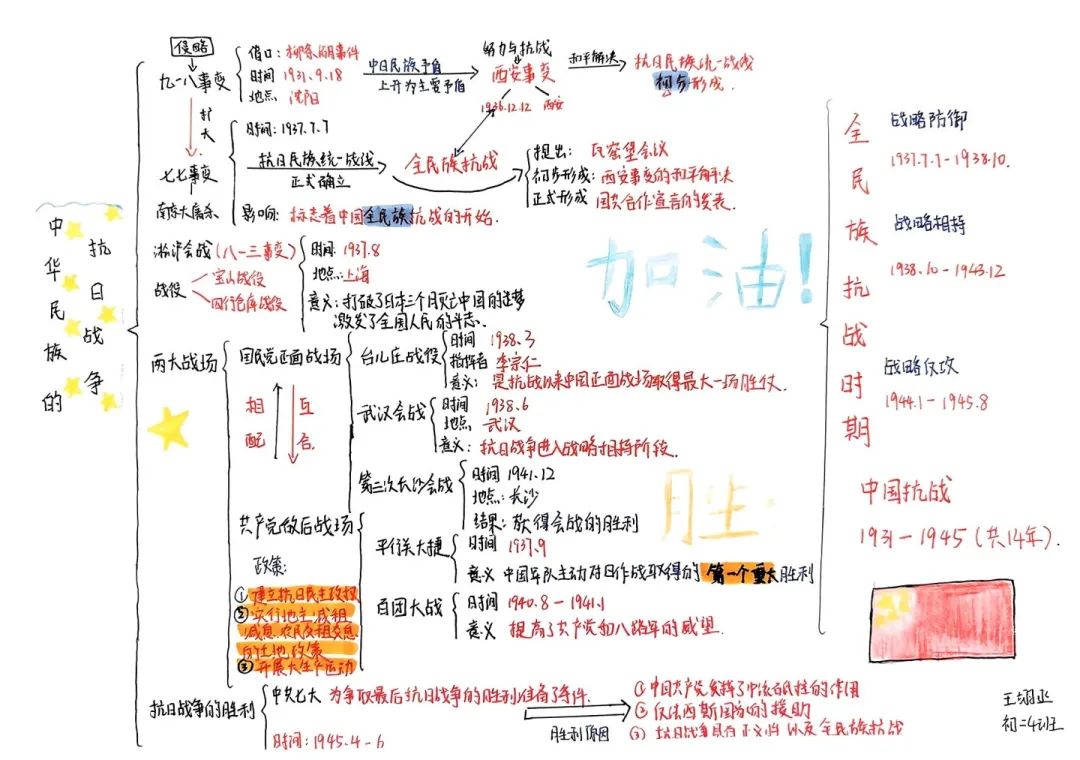 中华民族的
抗日战争
侵略
九一八事变
借口：柳条湖事件
时间 1931.9.18
地点：沈阳
中日民族矛盾
上升为主要矛盾
努力与抗战
西安事变
1936.12.12 西安
和平解决
抗日民族统一战线
初步形成.
扩大
七七事变
南京大屠杀
时间：1937.7.7
抗日民族统一战线
正式确立
全民族抗战
提出：瓦窑堡会议
初步形成：西安事变的和平解决
正式形成 国共合作宣言的发表.
影响：标志着中国全民族抗战的开始.
淞沪会战(八一三事变)
战役
宝山战役
四行仓库战役
时间：1937.8
地点：上海
意义：打破了日本三个月灭亡中国的迷梦
激发了全国人民的斗志.
加油！
两大战场
国民党正面战场
相互
配合
台儿庄战役
时间 1938.3
指挥者 李宗仁
意义：是抗战以来中国正面战场取得最大一场胜仗.
武汉会战
时间 1938.6
地点：武汉
意义：抗日战争进入战略相持阶段.
第三次长沙会战
时间 1941.12
地点：长沙
结果：获得会战的胜利
共产党敌后战场
政策：
①建立抗日民主政权
②实行地主减租
减息,农民交租交息
的土地政策
③开展大生产运动
平型关大捷
时间 1937.9
意义 中国军队主动对日作战取得的第一个重大胜利
百团大战
时间 1940.8－1941.1
意义 提高了共产党和八路军的威望.
抗日战争的胜利
中共七大 为争取最后抗日战争的胜利准备了条件.
时间：1945.4-6
胜利原因
①中国共产党发挥了中流砥柱的作用
②反法西斯国家的援助
③抗日战争具有正义性 以及全民族抗战
全民族抗战时期
战略防御
1937.7.7-1938.10.
战略相持
1938.10-1943.12
战略反攻
1944.1-1945.8
胜
中国抗战
1931－1945(共14年).
初二4班